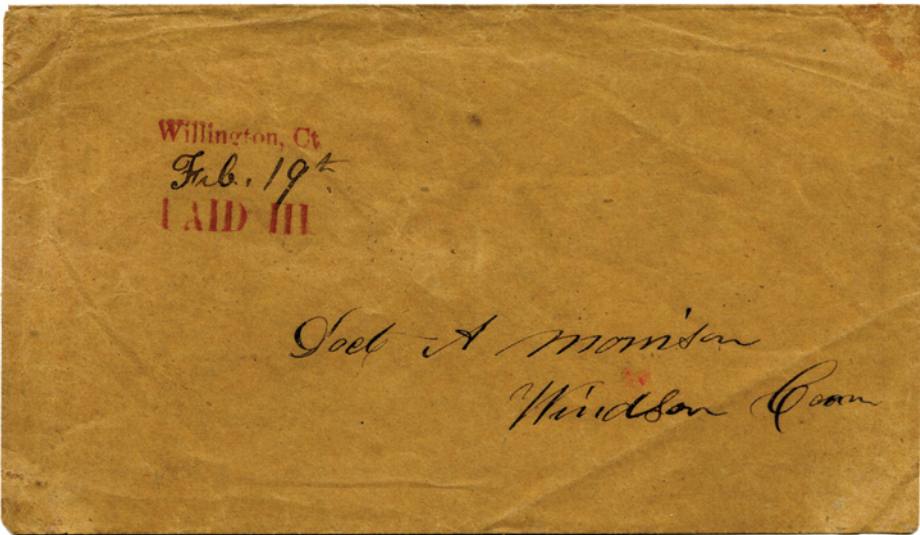 Willington, Ct
Feb. 19th
PAID III
Doct A Morrison
Windsor Conn